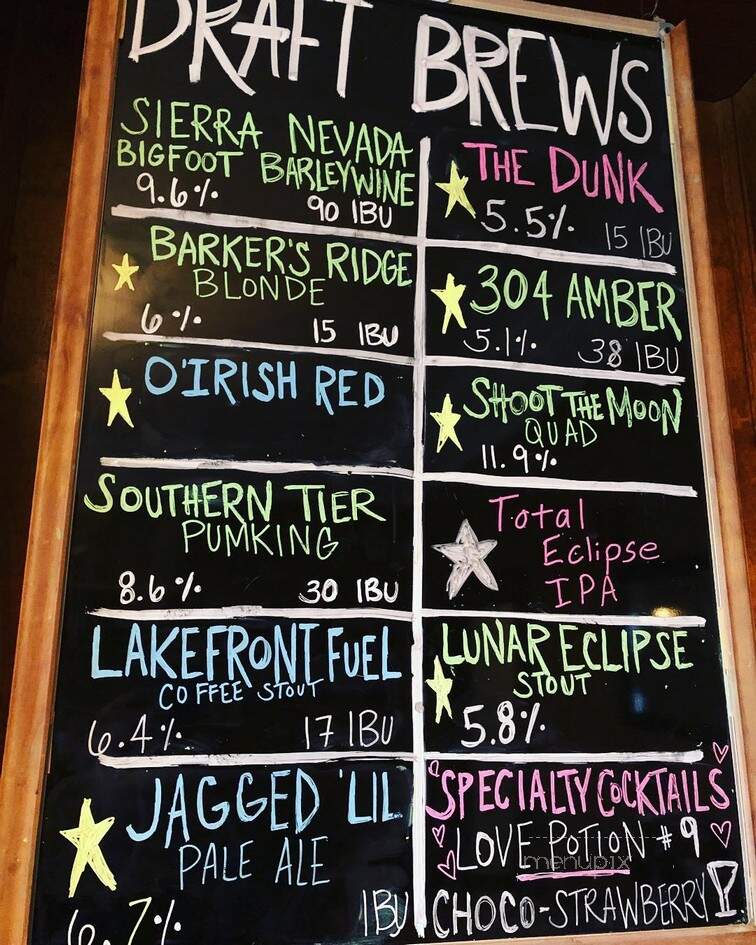 DRAFT BREWS
SIERRA NEVADA
BIGFOOT BARLEYWINE
9.6% 90 IBU
BARKER'S RIDGE
BLONDE
6% 15 IBU
O'IRISH RED
SOUTHERN TIER
PUMKING
8.6% 30 IBU
LAKEFRONT FUEL
COFFEE STOUT
6.4% 17 IBU
JAGGED 'LIL
PALE ALE
6.7% IBU
THE DUNK
5.5% 15 IBU
304 AMBER
5.1% 38 IBU
SHOOT THE MOON
QUAD
11.9%
Total
Eclipse
IPA
LUNAR ECLIPSE
STOUT
5.8%
SPECIALTY COCKTAILS
LOVE POTION #9
menupix
CHOCO-STRAWBERRY